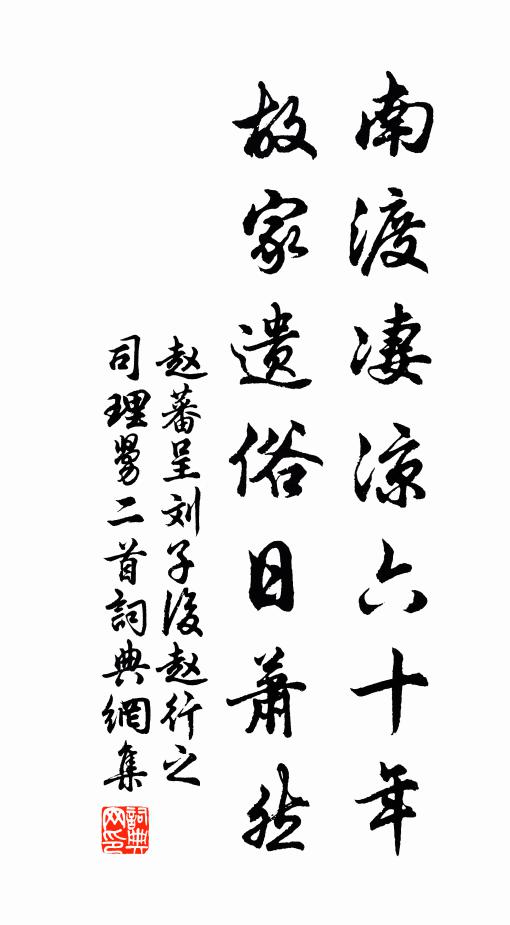 南渡凄凉六十年
故家遗俗日萧然
赵蕃呈刘子後赵行之
司理舅二首詞典網集
詞典网印